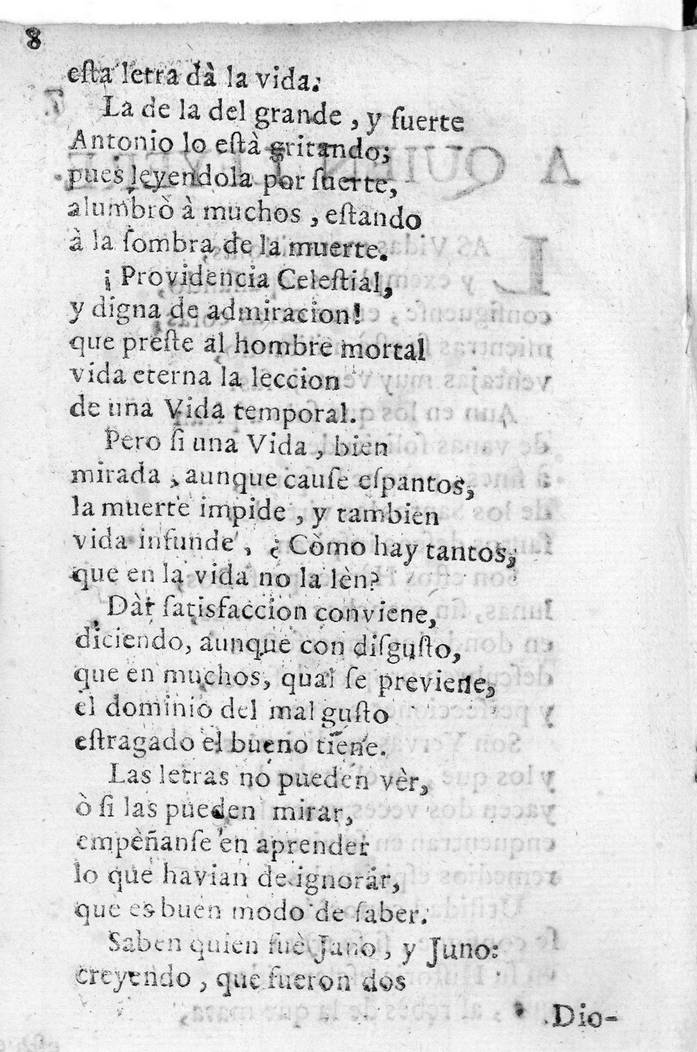 8
eſta letra dà la vida:
La de la del grande, y ſuerte
Antonio lo eſtà gritando;
pues leyendola por ſuerte,
alumbrò à muchos, eſtando
à la ſombra de la muerte.
¡Providencia Celeſtial,
y digna de admiracion!
que preſte al hombre mortal
vida eterna la leccion
de una Vida temporal.
Pero ſi una Vida, bien
mirada, aunque cauſe eſpantos,
la muerte impide, y tambien
vida infunde, ¿Còmo hay tantos,
que en la vida no la lèn?
Dàr ſatisfaccion conviene,
diciendo, aunque con diſguſto,
que en muchos, qual ſe previene,
el dominio del mal guſto
eſtragado el bueno tiene.
Las letras no pueden vèr,
ò ſi las pueden mirar,
empèñanſe en aprender
lo que havian de ignorár,
que es buen modo de ſaber.
Saben quien fuè Juno, y Juno:
creyendo, que fueron dos
Dio-